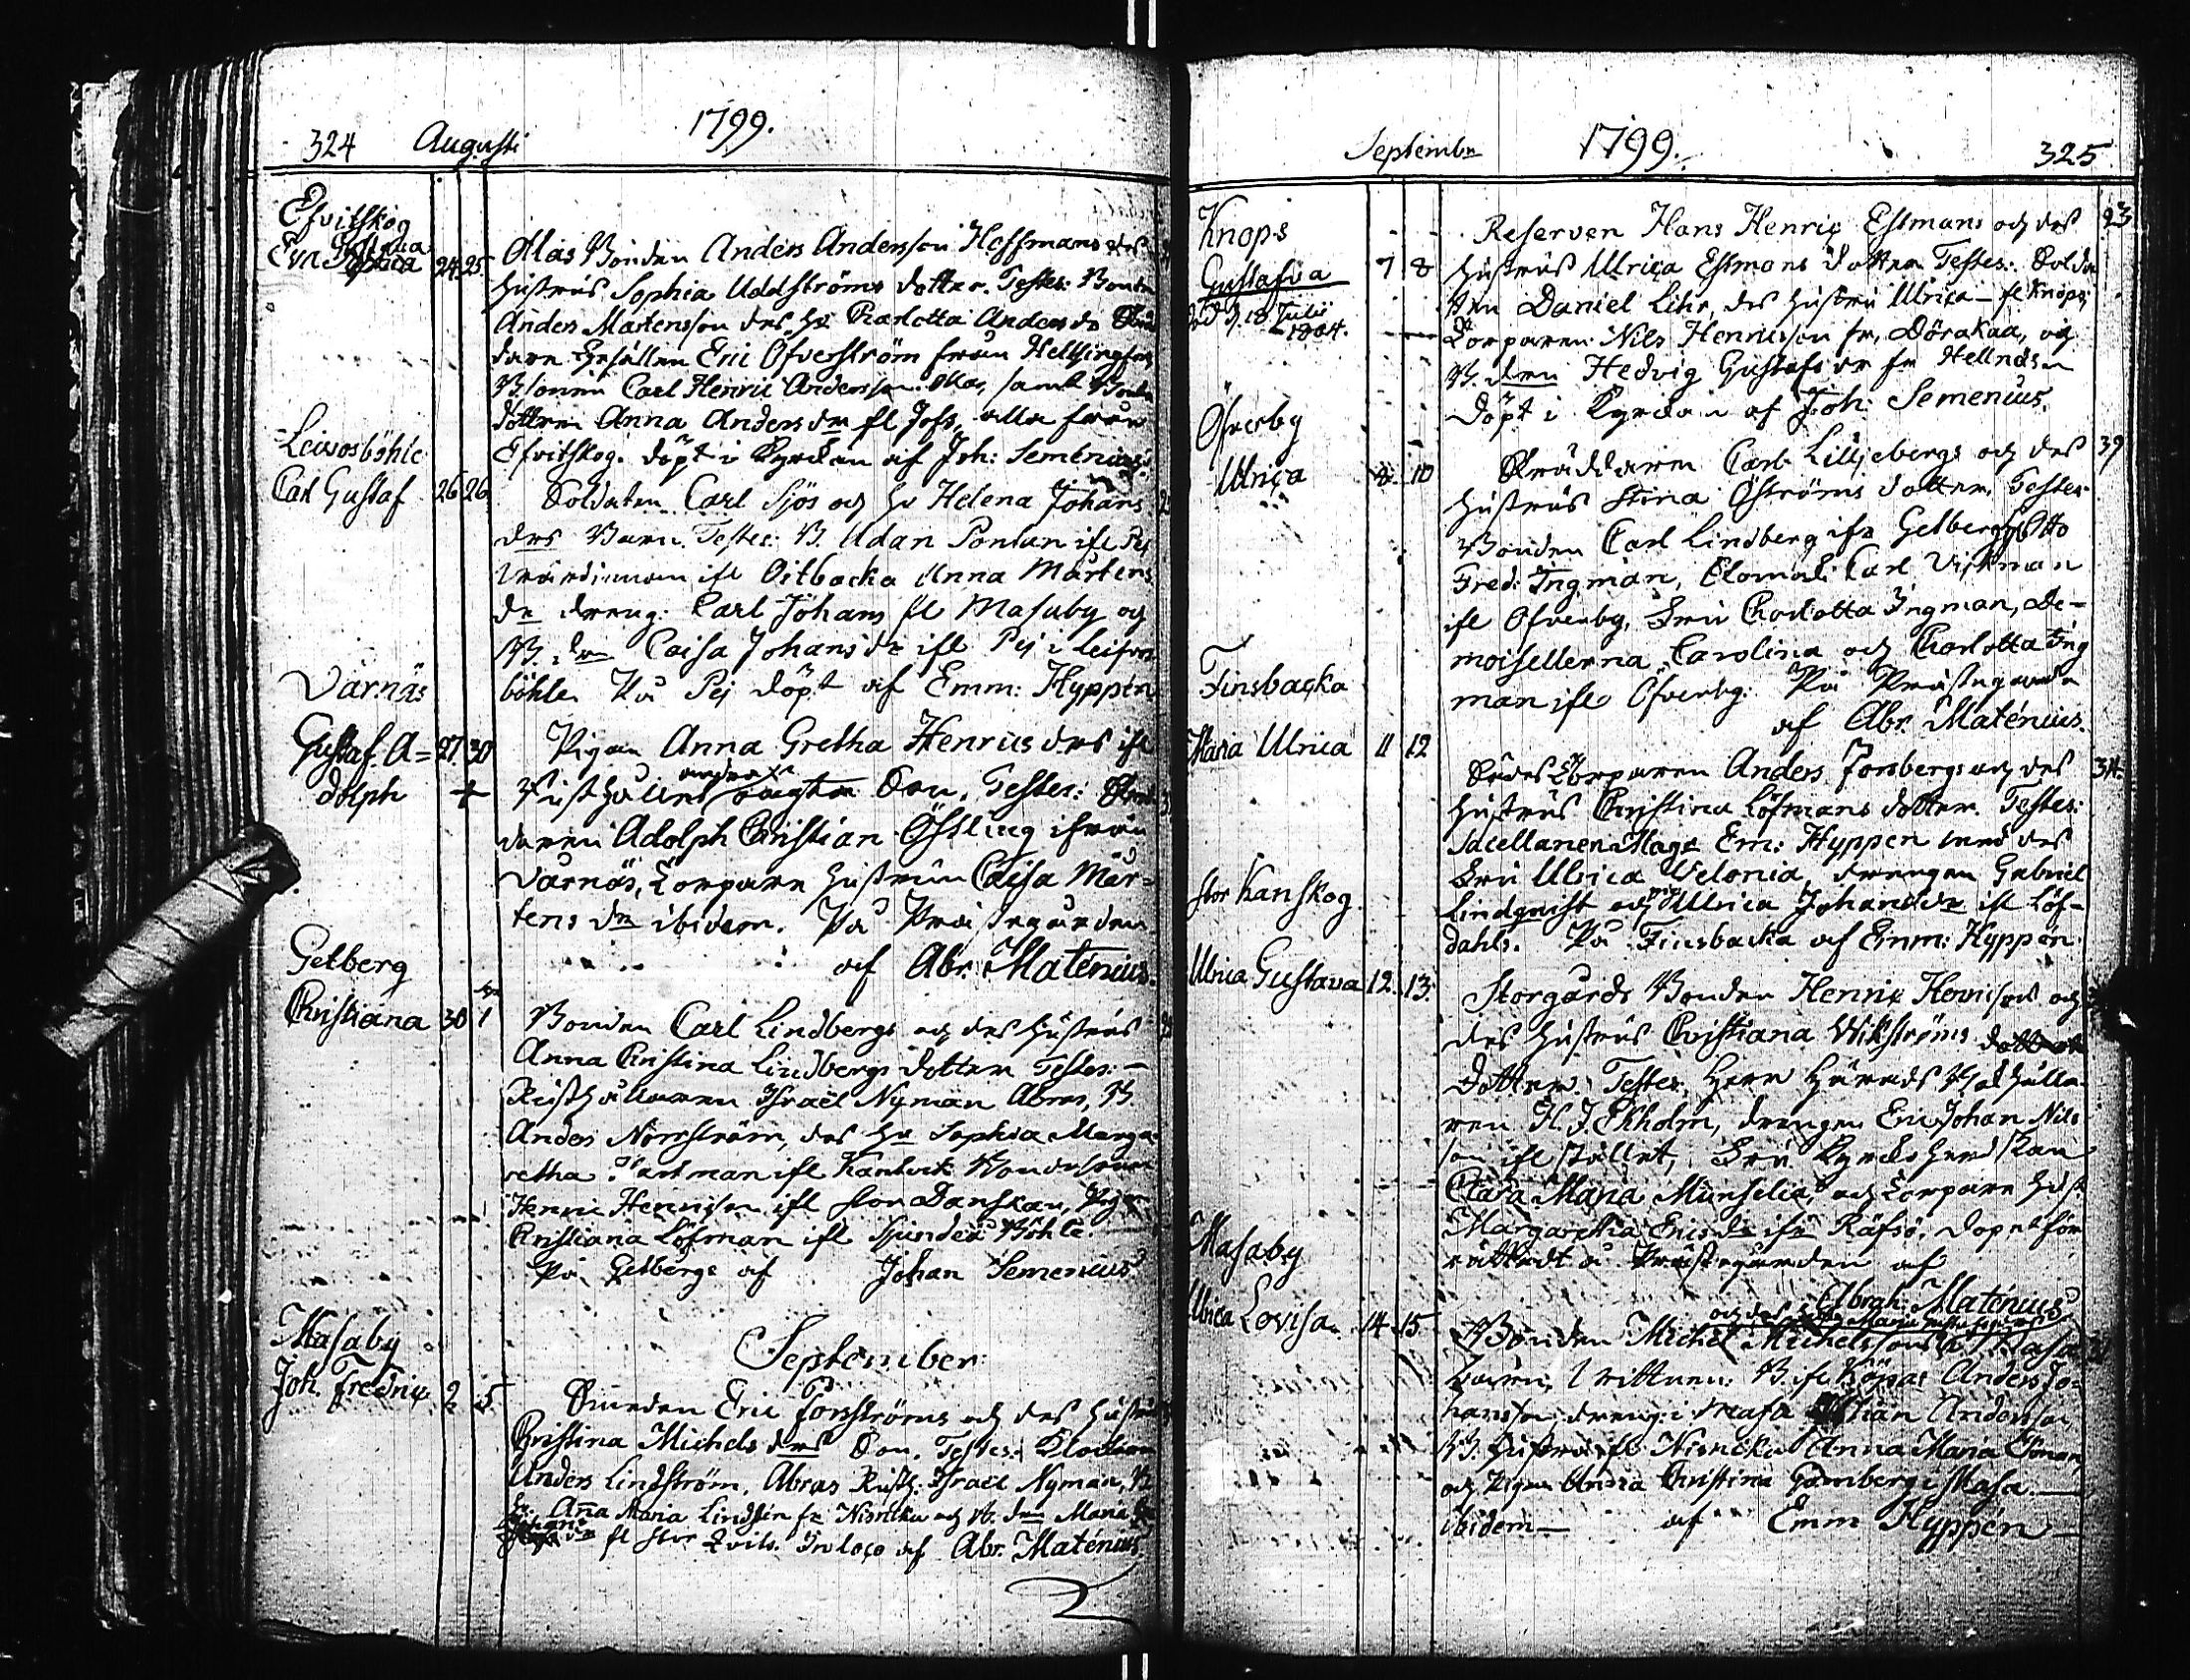 324 Augusti 1799.
Esvitskog
Eva Sophia 24 25
Mas Bonden Anders Andersson Hoffmans
Hustrus Sophia Uddströms dotter. Testes: Bonden
Anders Mårtensson des Hu Charlotta Anders dr
Gesällen Eric Öfverström från Hellsingfors
B. sonen Carl Henric Andersson Mas, samt Bonde
dottren Anna Anders dr fl Jofs, alla från
Esvitskog. döpt i Kyrckan af Joh: Semenius.
Leivosböhle
Carl Gustaf 26 26
Soldaten Carl Sjös och Hu Helena Johans
drs Barn. Testes: B. Adan Pontan ifl Pej
Värdinnan ifl Oitbacka Anna Mårtens
dr dreng: Carl Johans fl Masaby og
B. drn Caisa Johans dr ifl Pej i Leivos
böhle. På Pej döpt af Emm: Hyppén
Värnäs
Gustaf A= 27 30
dolph +
Pigan Anna Gretha Henrics drs ifl
andra
Rusthållet oägta Son. Testes:
Adolph Christian Össling ifrån
Värnäs, Torpare Hustrun Caisa Mår=
tens dr ibidem. På Prästegården
af Abr. Maténius.
Getberg
Christiana 30 1
Bonden Carl Lindbergs och des Hustrus
Anna Christina Lindbergs dotter Testes: —
Rusthållaren Israël Nyman Abras, B.
Anders Norrström, des Hu Sophia Marga=
retha Hartman ifl Kantvik Bondesonen
Henric Henricson ifl stor Danskan, Pigan
Christiana Löfman ifl Sjundeå Böhle.
På Getbergs af Johan Semenius
September
Masaby
Joh. Fredric 2 5
Smeden Eric Forsströms och des Hustrus
Christina Michels drs Son. Testes: Klockaren
Anders Lindström, Abras Rusth: Israel Nyman, B.
Hu Anna Maria Lindsten fr Nisnicku och B. drn Maria
Johans dr fl stor Kvils. In loco af Abr. Maténius
September 1799. 325
Knops
Gustafva 7 8
död d. 18 Julii
1804.
Reserven Hans Henric Estmans och des 23
Hustrus Ulrica Estmans dotter Testes: Solda
ten Daniel Lihr, des Hustru Ulrica — fl Knops,
Torparen Nils Henricsson fr. Dörakaa, og
B. drn Hedvig Gustafs dr fr Hellnäs
Döpt i Kyrckan af Joh: Semenius.
Öfverby
Ulrica 8 10
Skräddaren Carl Liljebergs och des 39
Hustrus Stina Öströms dotter, Testes
Bonden Carl Lindberg ifr Getberg, Otto
Fred: Ingman, Carl Vikman
ifl Öfverby, Fru Charlotta Ingman, De=
moisellerna Carolina och Charlotta Ing
man ifl Öfverby. På Prästegården
af Abr. Maténius.
Finsbacka
Maria Ulrica 11 12
Torparen Anders Forsbergs och des 34.
Hustrus Christina Löfmans dotter. Testes:
Sacellanen Mag: Em: Hyppén med des
Fru Ulrica Velonia, drengen Gabriel
Lindqvist och pig. Ulrica Johans dr ifl Löf=
dahls. På Finsbacka af Emm: Hyppén.
stor Kanskog
Ulrica Gustava 12 13
Storgårds Bonden Henric Henricsons och
des Hustrus Christiana Wikströms
dotter. Testes: Herr Härads Skrifva
ren H. J. Ekholm, drengen Eric Johan Nils
son ifl stället, Fru Kyrckoherdskan
Clara Maria Munselia, och Torpare Hust
Margaretha Erics dr ifr Räfsö. Dopet för
rättadt å Prästegården af
Abrah: Maténius
Masaby
Ulrica Lovisa 14 15
Bonden Michel Michelssons i Masa
och des Hu Maria Gustafs drs
Barn. Vittnen: B. ifl Köpas Anders Jo=
hansson, dreng: i Masa Johan Anderson,
B. Hustru ifl Nisnicku Anna Maria Öman,
och Pigan Anna Christina Gamberg i Masa. —
ibidem — af Emm Hyppén —